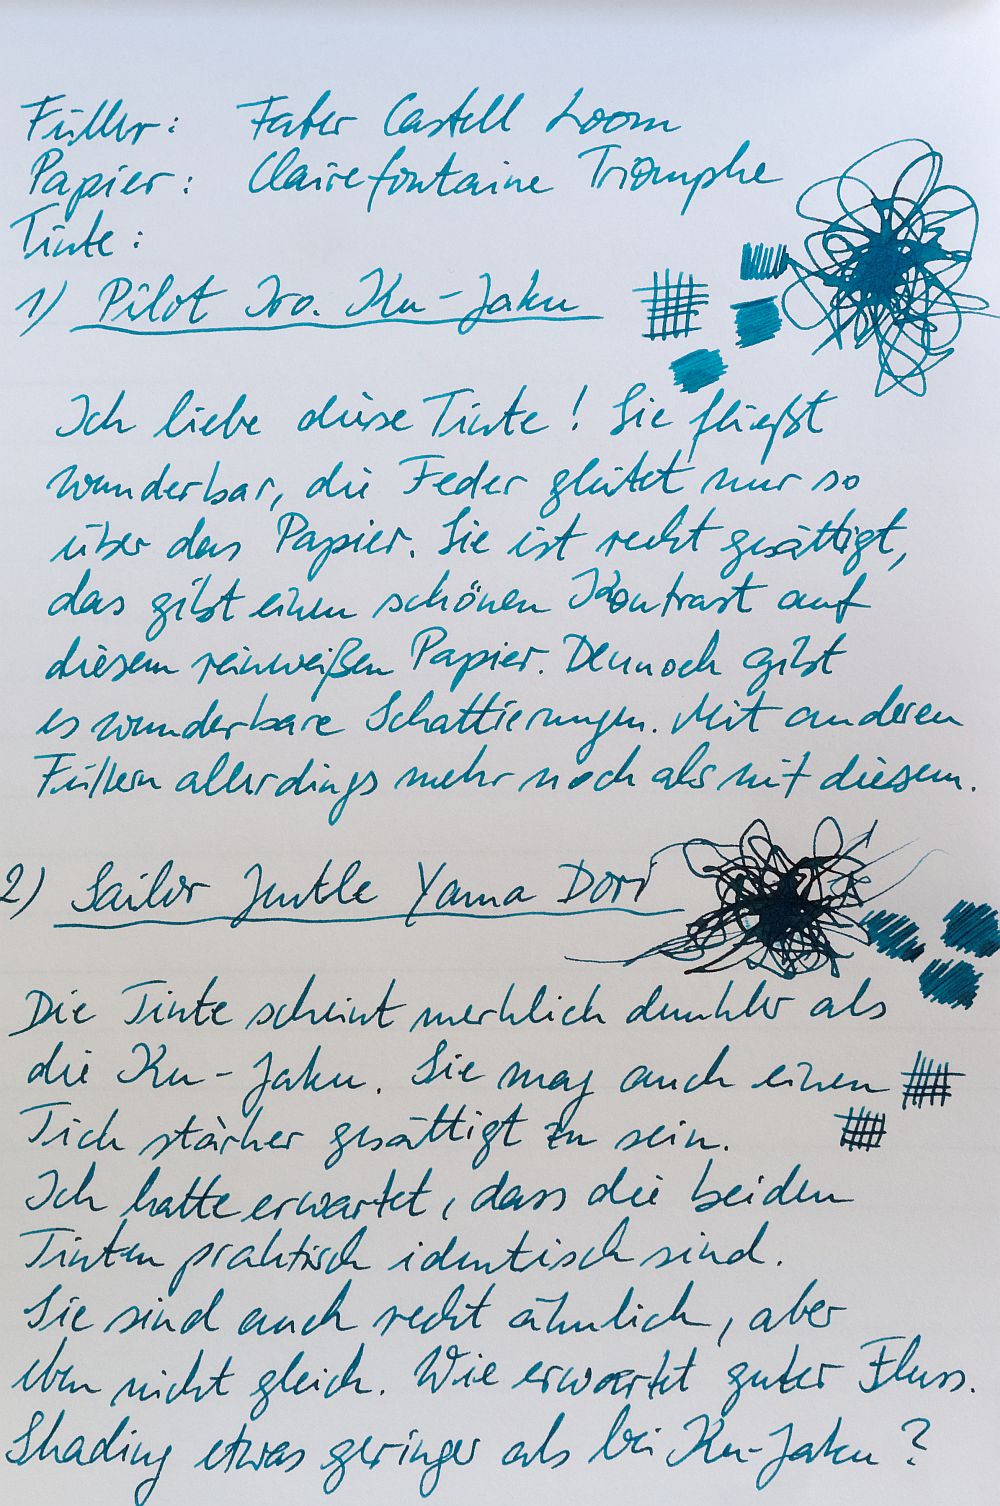 Füller: Faber Castell Loom
Papier: Clairefontaine Triomphe
Tinte:
1) Pilot Iro. Ku-Jaku
Ich liebe diese Tinte! Sie fließt
wunderbar, die Feder gleitet nur so
über das Papier. Sie ist recht gesättigt,
das gibt einen schönen Kontrast auf
diesem reinweißen Papier. Dennoch gibt
es wunderbare Schattierungen. Mit anderen
Füllern allerdings mehr noch als mit diesem.
2) Sailor Jentle Yama Dori
Die Tinte scheint merklich dunkler als
die Ku-Jaku. Sie mag auch einen
Tich stärker gesättigt zu sein.
Ich hatte erwartet, dass die beiden
Tinten praktisch identisch sind.
Sie sind auch recht ähnlich, aber
eben nicht gleich. Wie erwartet guter Fluss.
Shading etwas geringer als bei Ku-Jaku?